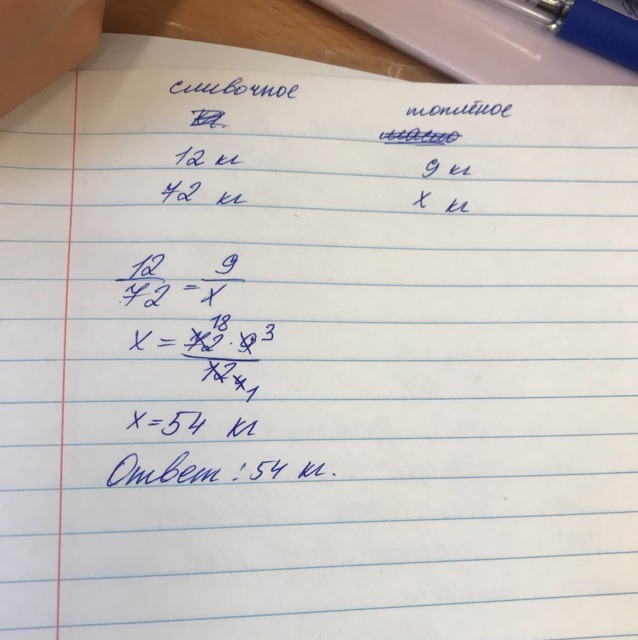 сливочное топлёное
кг масло
12 кг 9 кг
72 кг x кг
12/72 = 9/x
x = 72 18 · 9 3 / 12 4 1
x = 54 кг
Ответ: 54 кг.